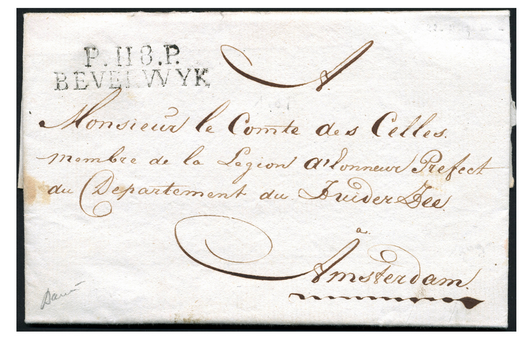 P.118.P.
BEVERWYK
A
Monsieur le Comte des Celles.
membre de la Legion d'honneur Prefect
du Departement du Zuider Zee.
a
Amsterdam.